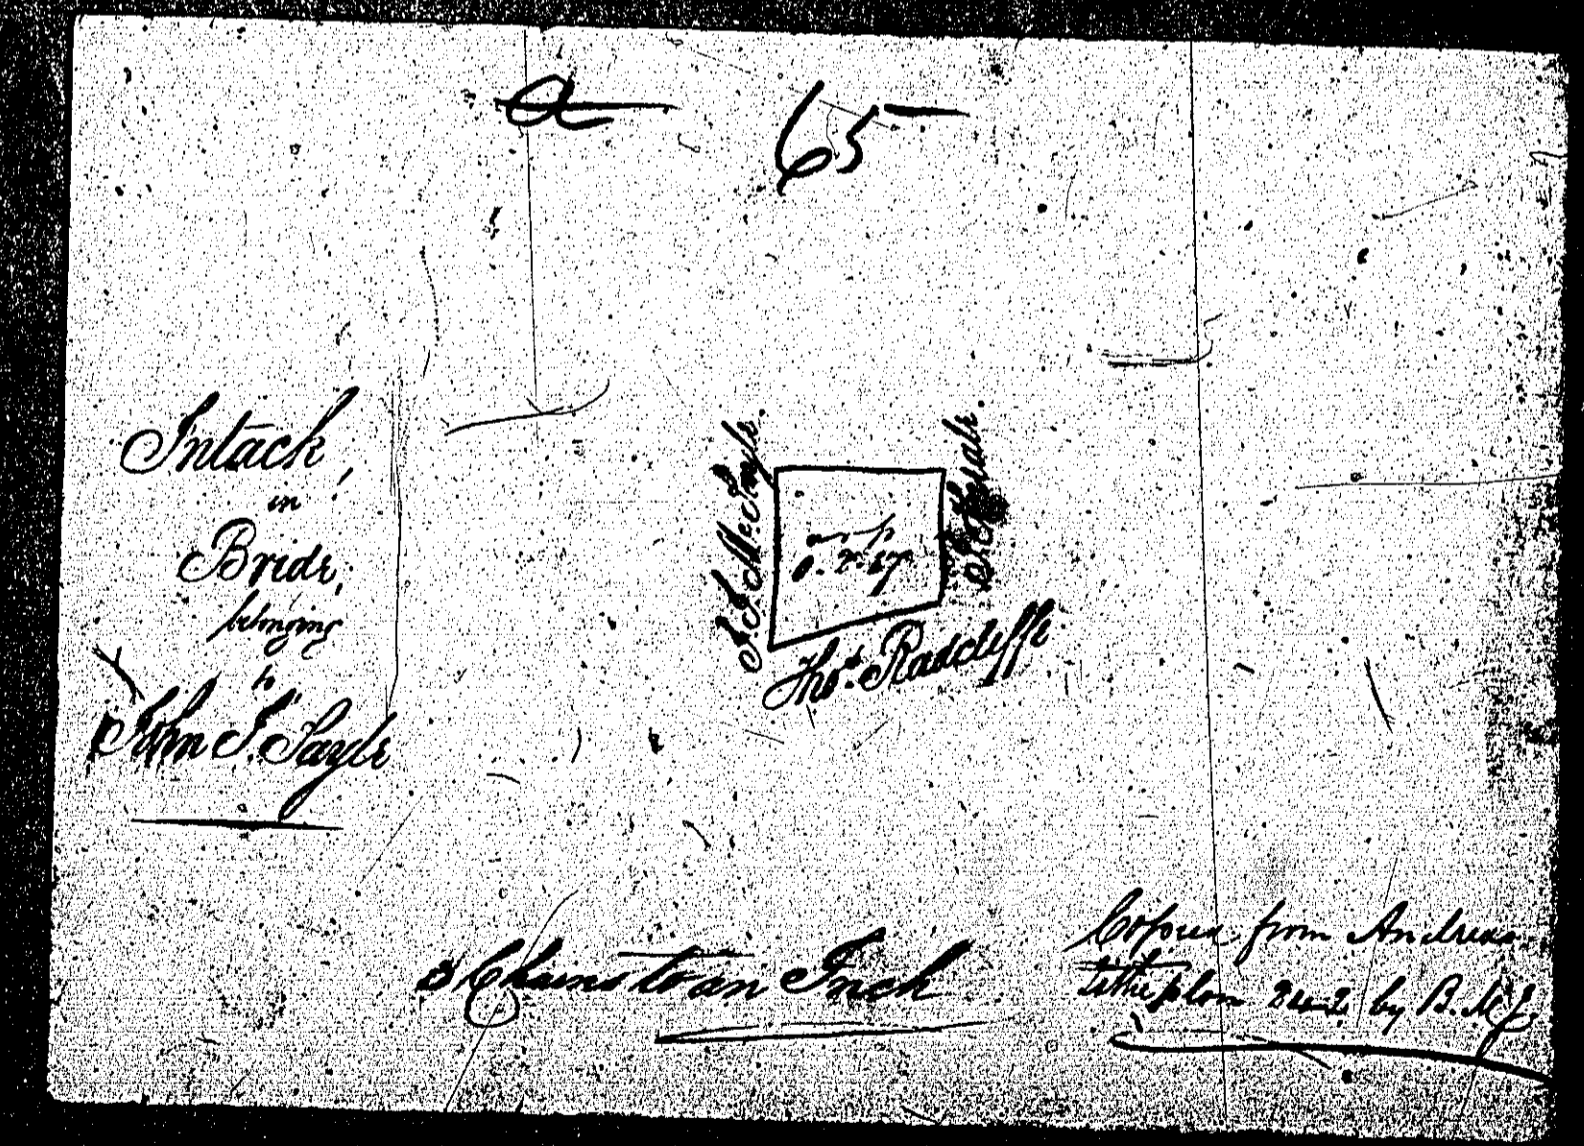 a 65
Intack,
in
Bride,
belonging
to
John T. Sayle
J. T. Mc Sayle.
a r p
Thos. Radcliffe
3 Chains to an Inch
Copied from Andreas
tithe plan by B. McJ.